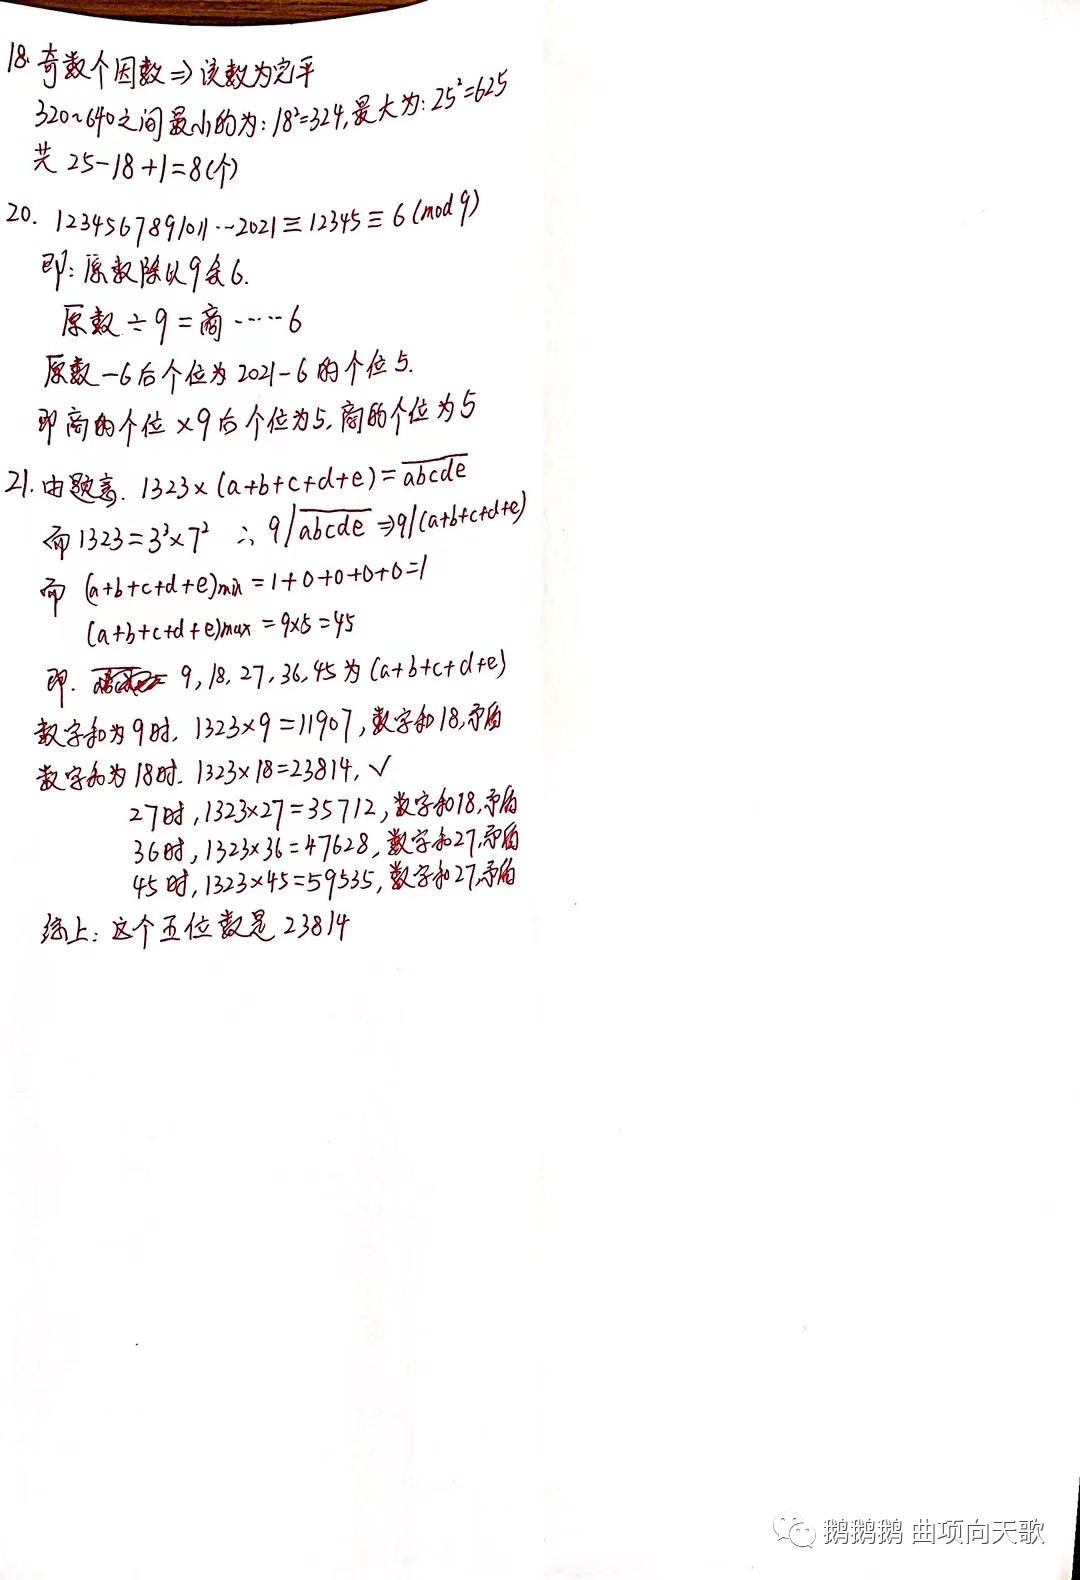 18. 奇数个因数⇒该数为完平
320~640之间最小的为:18²=324,最大为:25²=625
共 25-18+1=8(个)
20. 1234567891011…2021≡12345≡6(mod 9)
即:原数除以9余6.
原数÷9=商……6
原数-6后个位为2021-6的个位5.
即商的个位×9后个位为5,商的个位为5
21. 由题意. 1323×(a+b+c+d+e)=abcde
而1323=3³×7² ∴9|abcde⇒9|(a+b+c+d+e)
而 (a+b+c+d+e)min=1+0+0+0+0=1
(a+b+c+d+e)max=9×5=45
即. 9,18,27,36,45为(a+b+c+d+e)
数字和为9时. 1323×9=11907,数字和18,矛盾
数字和为18时. 1323×18=23814,√
27时,1323×27=35712,数字和18,矛盾
36时,1323×36=47628,数字和27,矛盾
45时,1323×45=59535,数字和27,矛盾
综上:这个五位数是23814
鹅鹅鹅 曲项向天歌